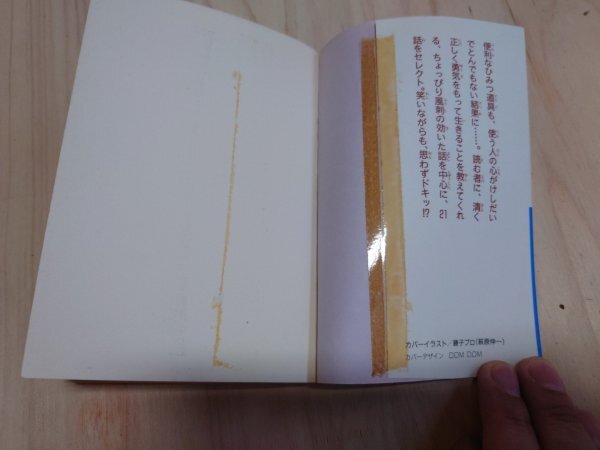 便利なひみつ道具も、使う人の心がけしだい
でとんでもない結果に……。読む者に、清く
正しく勇気をもって生きることを教えてくれ
る、ちょっぴり風刺の効いた話を中心に、21
話をセレクト。笑いながらも、思わずドキッ!?
カバーイラスト／藤子プロ(萩原伸一)
カバーデザイン DOM DOM